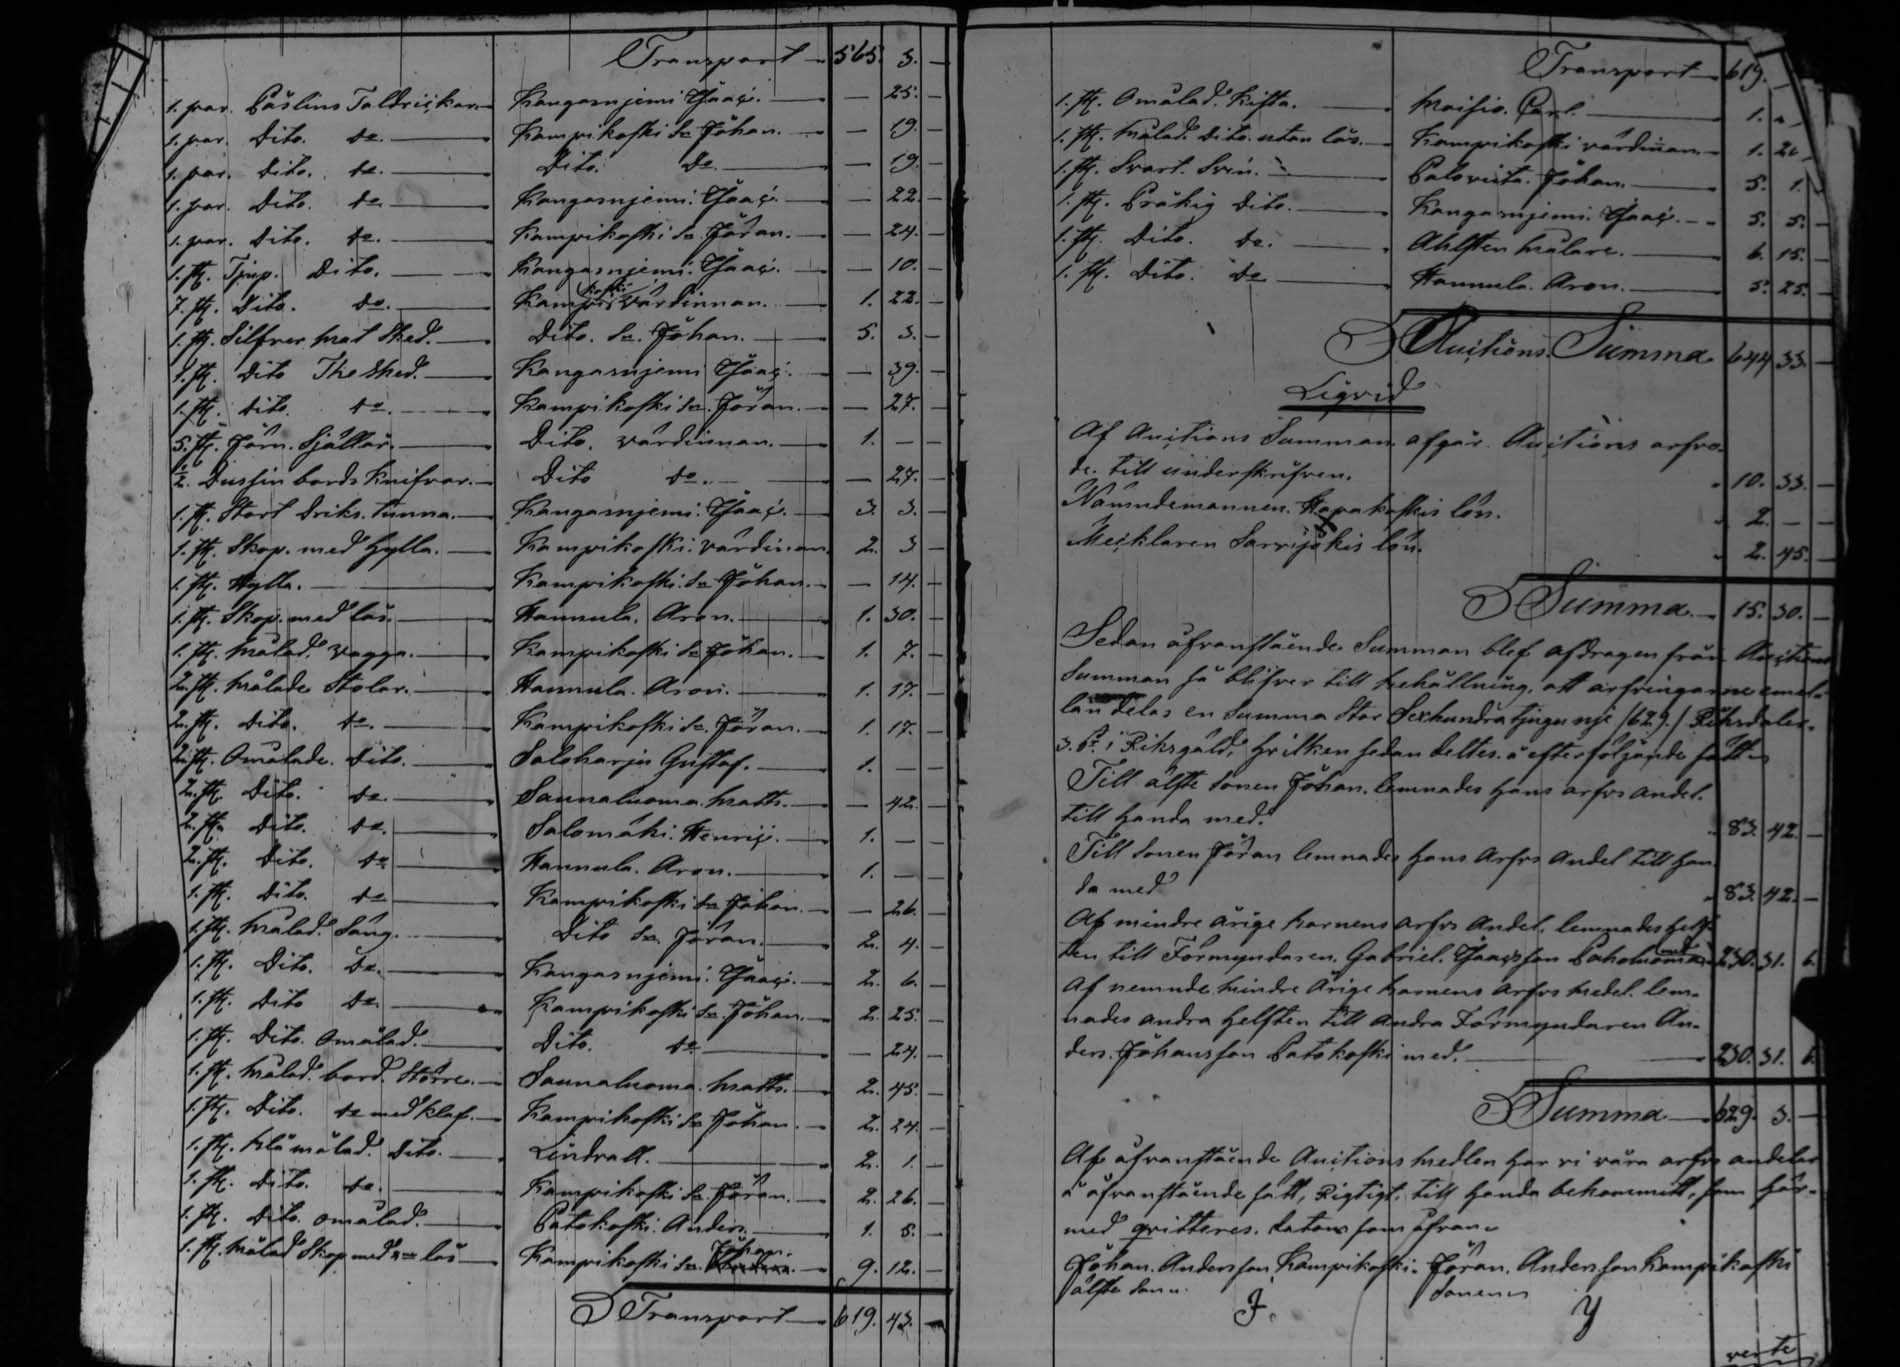 Transport 565. 3. —
1. par. Påslins Taldrickar. Kangasnjemi Jsaac. — 25. —
1. par. Dito. do. Kampikoski so. Johan. — 19. —
1. par. Dito. do. Dito. do. — 19. —
1. par. Dito. do. Kangasnjemi. Jsaac. — 22. —
1. par. Dito. do. Kampikoski so. Jöran. — 24. —
1. st. Dito. Kangasnjemi. Jsaac. — 10. —
7. st. Dito. do. Kampikoski värdinnan. 1. 22. —
1. st. Silfver mat sked. Dito. so. Johan. 5. 3. —
1. st. Dito The sked. Kangasnjemi Jsaac. — 39. —
1. st. Dito. do. Kampikoski so. Jöran. — 27. —
5. st. Järn. Dito. värdinnan. 1. — —
½ Dussin bords Knifvar. Dito do. — 27. —
1. st. Stort Dricks. tunna. Kangasnjemi. Jsaac. 3. 3. —
1. st. Skop. med hylla. Kampikoski. värdinan. 2. 3 —
1. st. Hylla. Kampikoski. so. Johan. — 14. —
1. st. Skop. med lås. Hannula. Aron. 1. 30. —
1. st. målad. vagga. Kampikoski so. Johan. 1. 7. —
2. st. målade Stolar. Hannula. Aron. 1. 17. —
2. st. Dito. do. Kampikoski so. Jöran. 1. 17. —
2. st. Omålade. Dito. Saloharju Gustaf. 1. — —
2. st. Dito. do. Saunaluoma. Matts. — 42. —
2. st. Dito. do. Salomäki. Henric. 1. — —
2. st. Dito. do. Hannula. Aron. 1. — —
1. st. Dito. do. Kampikoski so. Johan. — 26. —
1. st. Målad. Säng. Dito so. Jöran. 2. 4. —
1. st. Dito. do. Kangasnjemi. Jsaac. 2. 6. —
1. st. Dito do. Kampikoski so. Johan. 2. 25. —
1. st. Dito. omålad. Dito. do. — 24. —
1. st. målad. bord. större. Saunaluoma. Matts. 2. 45. —
1. st. Dito. do med klaf. Kampikoski so. Johan. 2. 24. —
1. st. blå målad. Dito. Lindvall. 2. 1. —
1. st. Dito. do. Kampikoski so. Jöran. 2. 26. —
1. st. Dito. omålad. Patokoski. Anders. 1. 8. —
1. st. målad Skop med lås Kampikoski so. Johan. 9. 12. —
Transport 619. 43. —
Transport 619.
1. st. Omålad. Kista. Maisio. Carl. 1.
1. st. Målad. Dito. utan lås. Kampikoski värdinan. 1.
1. st. Svart. Svin. Johan. 5. 1.
1. st. Bräkig Dito. Kangasnjemi. Jsaac. 5. 5. —
1. st. Dito. do. Ahlsten Målare. 6. 15. —
1. st. Dito. do Hannula. Aron. 5. 25. —
Auctions Summa 644 33. —
Liqvid
Af Auctions Summan afgår. Auctions arfvo-
de. till underskrifven. 10. 33. —
Nämndemannen. Hapakoskis lön. 2. — —
Mecklaren Sarvijokis lön. 2. 45. —
Summa 15. 30. —
Sedan åfvanstående Summan blef afdragen från Auctions
Summan så blifver till behållning, att arfvingarne emel-
lan delas en Summa Stor Sexhundra tjugu nje /629./ Riksdaler.
3. sk. i Riksgäld, hvilken sedan deltes. å efterföljande sätt
Till älste sonen Johan. lemnades hans arfvs andel.
till handa med. 83. 42. —
Till sonen Jöran lemnades hans Arfvs Andel till han
da med 83. 42. —
Af mindre årige barnens arfvs Andel. lemnades helf-
ten till Förmyndaren. Gabriel. Jsacsson Paholuoma med 230. 31. 6.
Af nemnde. mindre årige barnens Arfvs medel. lem-
nades andra helften till Andra Förmyndaren An-
ders. Johansson Patokoski med. 230. 31. 6.
Summa 629. 3. —
Af åfvanstående Auctions medlen har vi våra arfvs andelar
å åfvanstående sätt, Rigtigt. till handa bekommitt, som här-
med qvitteres. datum som åfvan
Johan. Andersson Kampikoski. Jöran. Andersson Kampikoski
älste son sonen
J. Y
verte